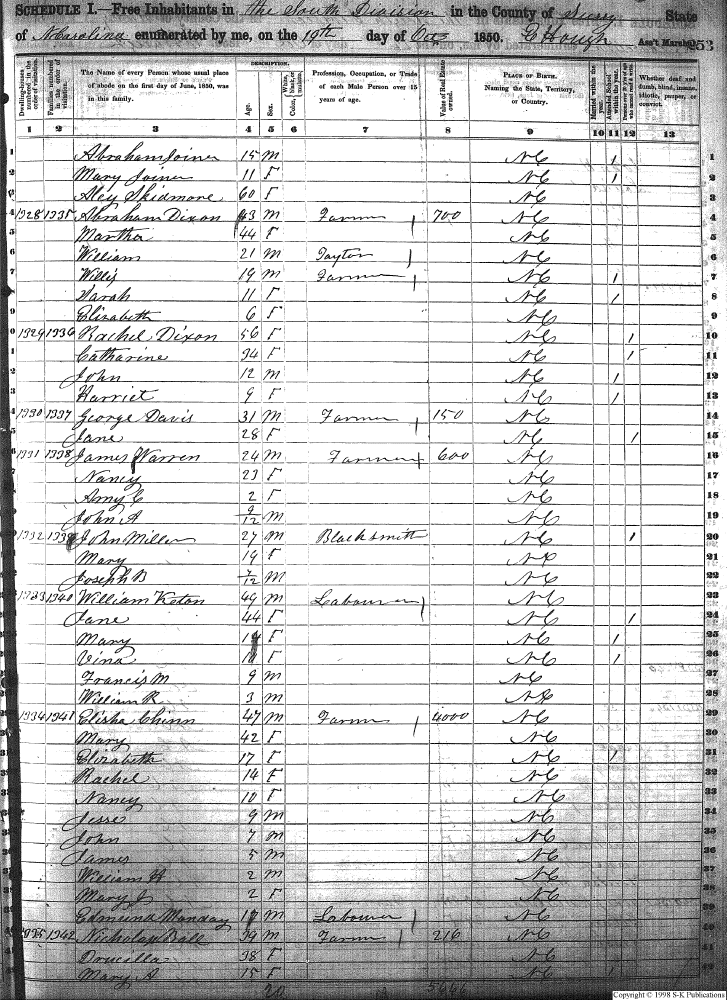 SCHEDULE I.—Free Inhabitants in the South Division in the County of Surry State
of N Carolina enumerated by me, on the 19th day of Oct 1850. C Hough Ass't Marshal. 253
DESCRIPTION.
Dwelling-houses numbered in the order of visitation.
Families numbered in the order of visitation.
The Name of every Person whose usual place of abode on the first day of June, 1850, was in this family.
Age.
Sex.
Color, White, black, or mulatto.
Profession, Occupation, or Trade of each Male Person over 15 years of age.
Value of Real Estate owned.
PLACE OF BIRTH. Naming the State, Territory, or Country.
Married within the year.
Attended School within the year.
Persons over 20 y'rs of age who cannot read and write.
Whether deaf and dumb, blind, insane, idiotic, pauper, or convict.
1 2 3 4 5 6 7 8 9 10 11 12 13
1 Abraham Joiner 15 M NC 1 1
2 Mary Joiner 11 F NC 1 2
3 Aley Skidmore 60 F NC 3
4 1928 1935 Abraham Dixon 43 M Farmer 700 NC 4
5 Martha 44 F NC 5
6 William 21 M NC 6
7 Willis 19 M Farmer NC 1 7
8 Sarah 11 F NC 1 8
9 Elizabeth 6 F NC 9
10 1929 1936 Rachel Dixon 56 F NC 1 10
11 Catharine 34 F NC 1 11
12 John 12 M NC 1 12
13 Harriet 9 F NC 1 13
14 1930 1937 George Davis 31 M Farmer 150 NC 14
15 Jane 28 F NC 1 15
16 1931 1938 James Warren 24 M Farmer 600 NC 16
17 Nancy 23 F NC 17
18 Amy C 2 F NC 18
19 John A 9/12 M NC 19
20 1932 1939 John Miller 27 M Blacksmith NC 1 20
21 Mary 19 F NC 21
22 Joseph B 7/12 M NC 22
23 1933 1940 William Keton 49 M Labourer NC 23
24 Jane 44 F NC 1 24
25 Mary F NC 1 25
26 Vina F NC 1 26
27 Francis M 9 M NC 27
28 William R 3 M NC 28
29 1934 1941 Elisha Chinn 47 M Farmer 4000 NC 29
30 Mary 42 F NC 30
31 Elizabeth 17 F NC 1 31
32 Rachel 14 F NC 32
33 Nancy 10 F NC 33
34 Jesse 9 M NC 34
35 John 7 M NC 35
36 James 5 M NC 36
37 William H 2 M NC 37
38 Mary J 2 F NC 38
39 Edmund Manday M Labourer NC 39
40 1935 1942 Nicholas Ball 39 M Farmer 216 NC 40
41 Drucilla 38 F NC 41
42 Mary A 15 F NC 1 42
5666
Copyright © 1998 S-K Publications